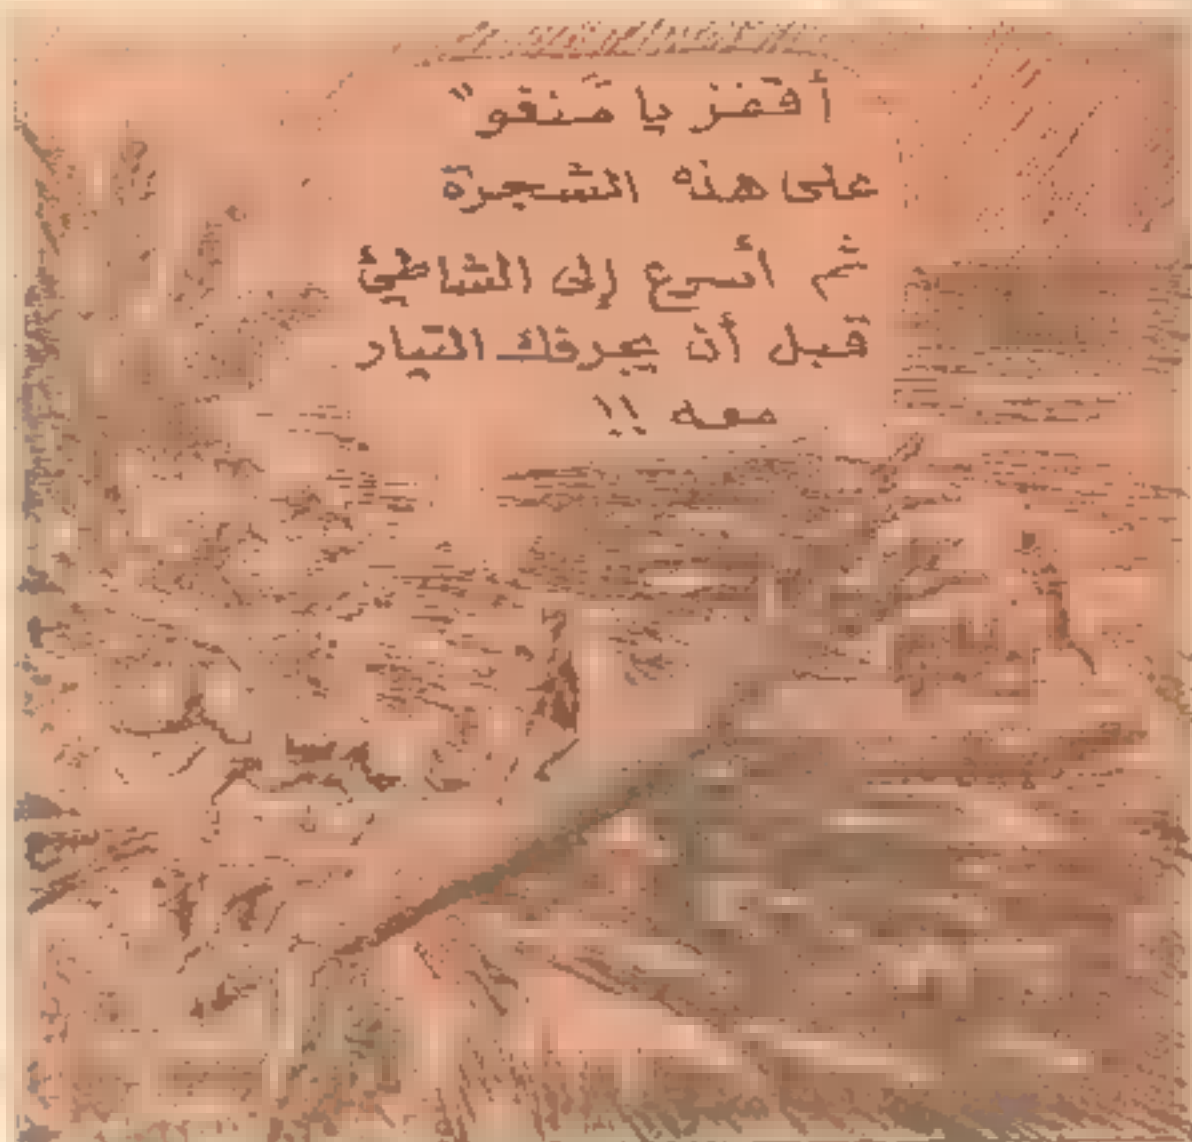 أقفز يا منغو"
على هذه الشجرة
ثم أسرع إلى الشاطئ
قبل أن يجرفك التيار
معه !!